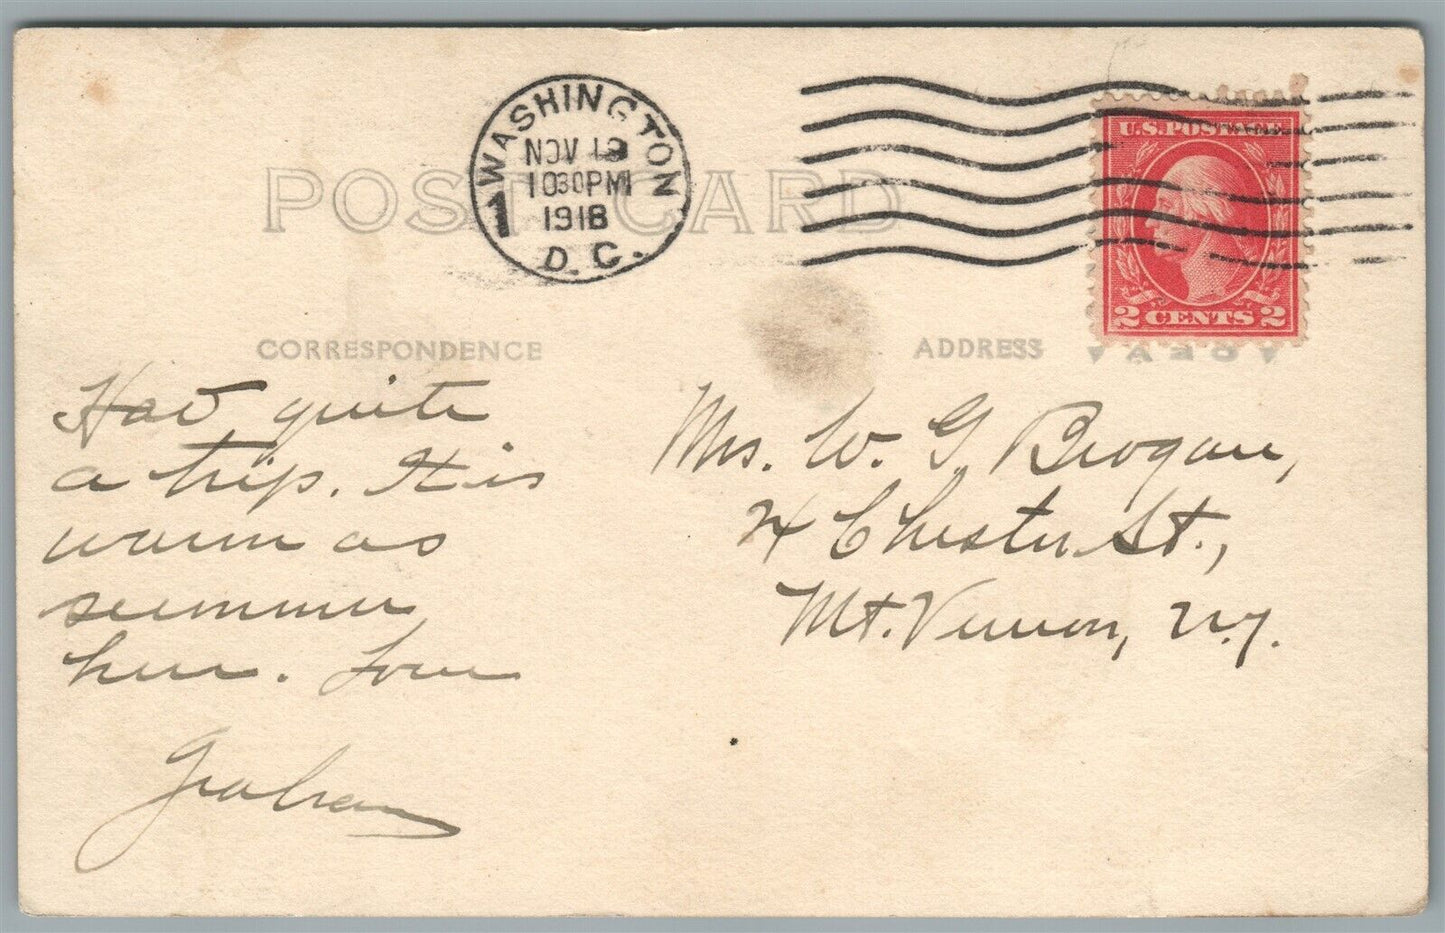 WASHINGTON
NOV 18
1030PM
1918
1
D.C.
POST CARD
U.S.POSTAGE
2 CENTS 2
CORRESPONDENCE
ADDRESS
Had quite
a trip. It is
warm as
summer
here. Love
Graham
Mrs. W. G. Brogan,
Chester St.,
Mt. Vernon, N.Y.